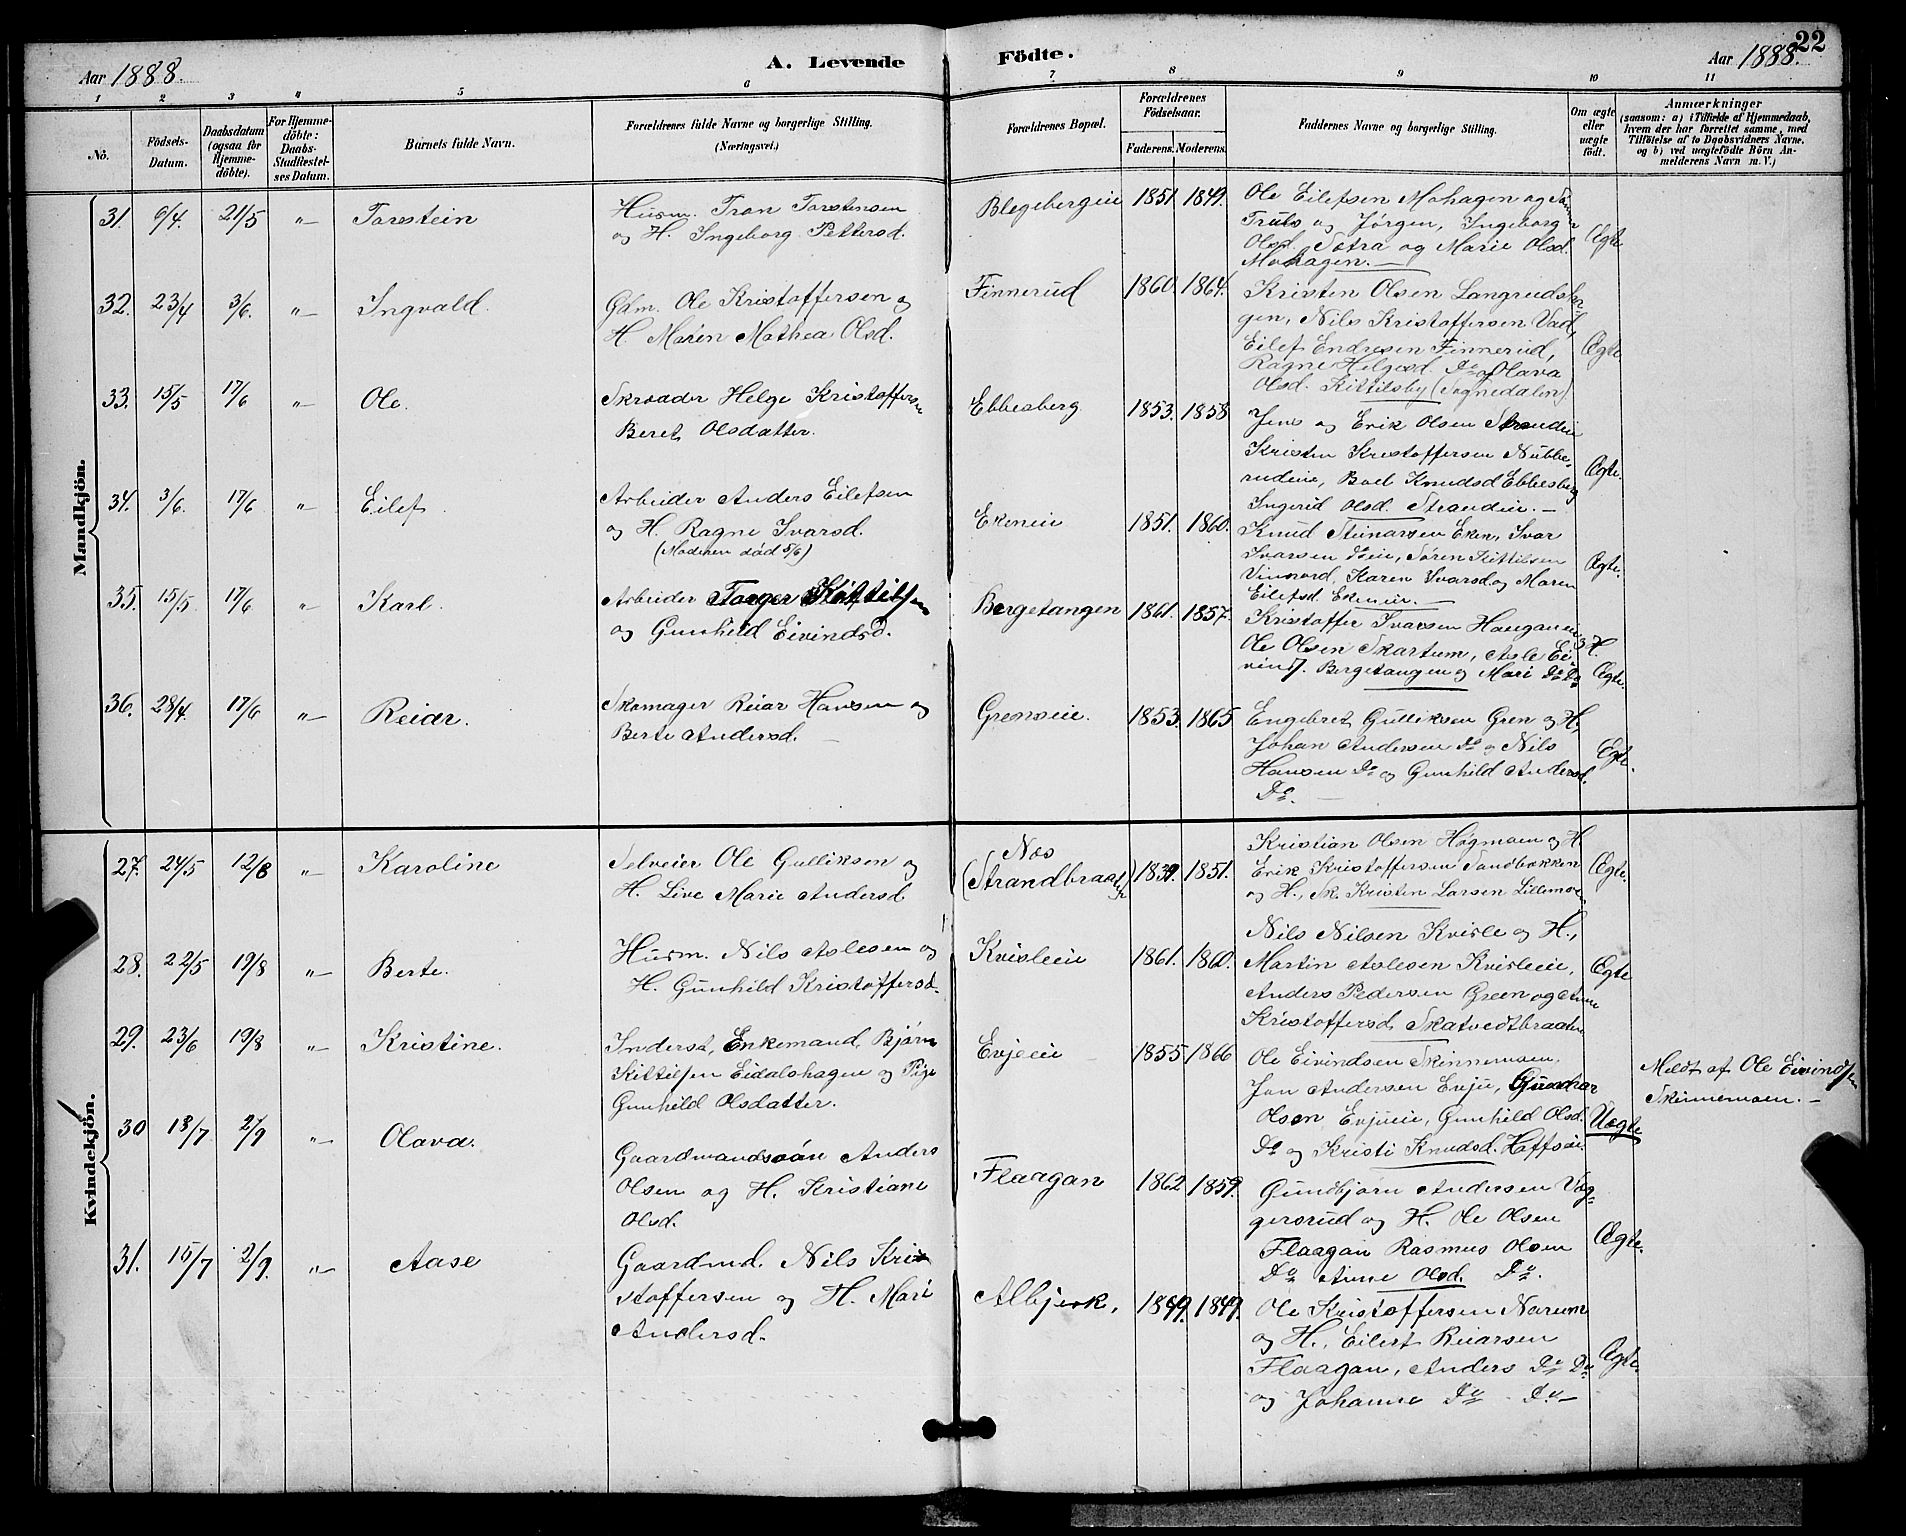 22
Aar 1888.
A. Levende
Födte.
Aar 1888.
1 2 3 4 5 6 7 8 9 10 11
No.
Födsels-
Datum.
Daabsdatum
(ogsaa for
Hjemme-
döbte).
For Hjemme-
döbte:
Daabs-
Stadfæstel-
ses Datum.
Barnets fulde Navn.
Forældrenes fulde Navne og borgerlige Stilling.
(Næringsvei.)
Forældrenes Bopæl.
Forældrenes
Födselsaar.
Faderens. Moderens.
Faddernes Navne og borgerlige Stilling.
Om ægte
eller
uægte
födt.
Anmærkninger
(saasom: a) i Tilfælde af Hjemmedaab,
hvem der har forrettet samme, med
Tilföielse af to Daabsvidners Navne.
og b) ved uægtefödte Börn An-
melderens Navn m. V.)
Mandkjön.
31. 6/4. 21/5 "
Torstein
Husm. Tron Torstensen
og H. Ingeborg Pettersd.
Blegebergeie 1851. 1849.
Ole Eilefsen Mohagen og
Truls og Jørgen, Ingeborg
Olsd. Sætra og Marie Olsd.
Mohagen.
Ægte
32. 23/4 3/6. "
Ingvald.
Gdm. Ole Kristoffersen og
H. Maren Mathea Olsd.
Finnerud 1860. 1864.
Kristen Olsen Langrudsha-
gen, Nils Kristoffersen Vad,
Eilef Endresen Finnerud,
Ragne Helgesd. Do og Olava
Olsd. Kittilsby (Sognedalen)
Ægte
33. 15/5 17/6 "
Ole.
Skrædder Helge Kristoffersen
Beret Olsdatter.
Ebbesberg 1853. 1858
Jens og Erik Olsen Strandeie
Kristen Kristoffersen Nubbe-
rudeie, Boel Knudsd Ebbesberg
Ingerid Olsd. Strandeie.
Ægte.
34. 3/6. 17/6 "
Eilef.
Arbeider Anders Eilefsen
og H. Ragne Ivarsd.
(Moderen død 5/6)
Ekeneie 1851. 1860.
Knud Steinarsen Eken, Ivar
Ivarsen Doeie, Søren Kittilsen
Vinsvord, Karen Ivarsd og Maren
Eilefsd Ekeneie.
Ægte.
35. 15/5 17/6 "
Karl.
Arbeider Torger Kittilsen
og Gunhild Eivindsd.
Bergetangen 1861. 1857.
Kristoffer Ivarsen Hauganeie
Ole Olsen Skartum, Asle Ei-
vinds. Bergetangen og Mari Do Do
Ægte.
36. 28/4. 17/6 "
Reiar.
Skomager Reiar Hansen og
Berte Andersd.
Grenseie. 1853. 1865
Engebret Gulliksen Gren og H.
Johan Andersen Do og Nils
Hansen Do og Gunhild Andersd.
Do.
Ægte.
Kvindekjön.
27. 24/5 12/8 "
Karoline
Selveier Ole Gulliksen og
H. Live Marie Andersd
Næs
(Strandbraaten) 1839. 1851.
Kristian Olsen Høgmoen og H.
Erik Kristoffersen Sandbækken
og H., Sk. Kristen Larsen Lillemoen
Ægte.
28. 22/5 19/8 "
Berte.
Husm. Nils Aslesen og
H. Gunhild Kristoffersd.
Kvisleeie 1861. 1860.
Nils Nilsen Kvisle og H.,
Martin Aslesen Kvisleeie,
Anders Pedersen Green og Anne
Kristoffersd. Skatvedtbraaten
Ægte
29. 23/6 19/8 "
Kristine.
Inderst, Enkemand Bjørn
Kittilsen Eidalshagen og Pige
Gunhild Olsdatter.
Evjeeie 1855 1866
Ole Eivindsen Skinnemoen,
Jon Andersen Evje, Gunnar
Olsen Evjueie, Gunhild Olsd.
Do og Kristi Knudsd. Hoffseie.
Uægte
Meldt af Ole Eivindsen
Skinnemoen.
30 18/7 2/9 "
Olava.
Gaardmandssøn Anders
Olsen og H. Kristiane
Olsd.
Flaagan 1862 1859.
Gundbjørn Andersen Væg-
gersrud og H. Ole Olsen
Flaagan Rasmus Olsen
Do Anne Olsd. Do.
Ægte.
31. 15/7 2/9. "
Aase
Gaardmd. Nils Kri-
stoffersen og H. Mari
Andersd.
Albjerk, 1849. 1849.
Ole Kristoffersen Narum
og H., Eilert Reiarsen
Flaagan, Anders Do Do
og Johanne Do Do
Ægte.